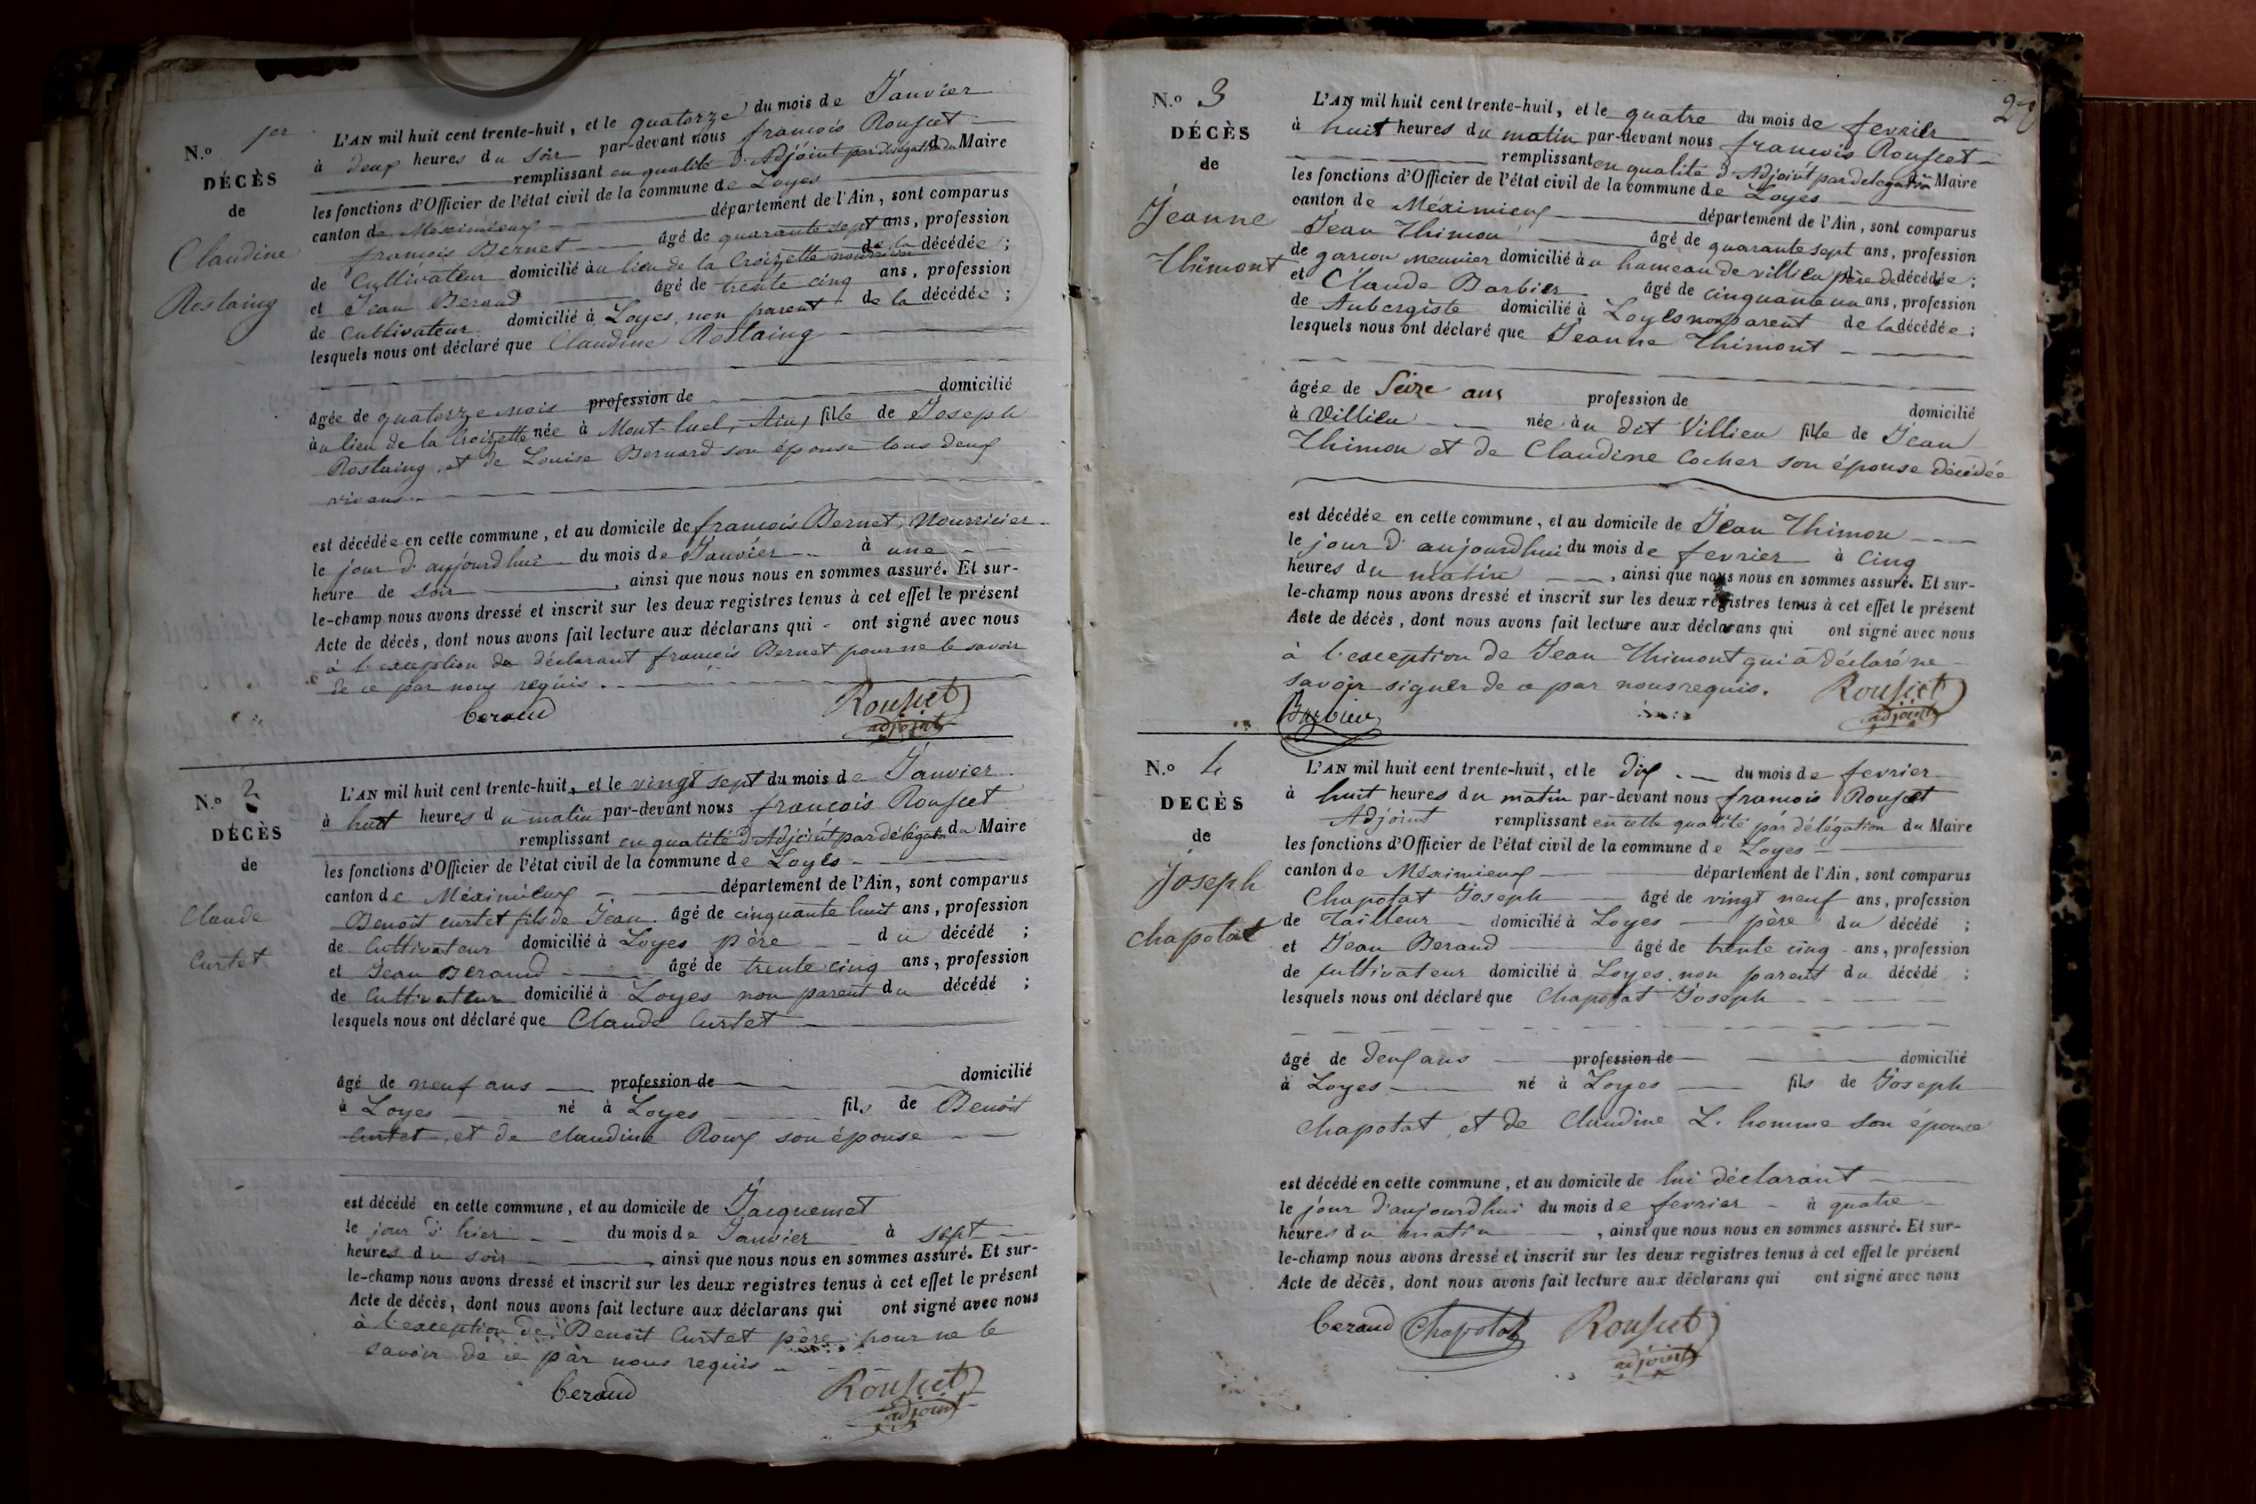 N.º 1er
DÉCÈS
de
Claudine
Rostaing
L'AN mil huit cent trente-huit, et le quatorze du mois de Janvier
à deux heures du soir par-devant nous françois Rousset
remplissant en qualité d'Adjoint par délégation du Maire
les fonctions d'Officier de l'état civil de la commune de Loyes
canton de Meximieux département de l'Ain, sont comparus
françois Bernet âgé de quarante sept ans, profession
de Cultivateur domicilié au lieu de la Croizette nourricier de la décédée ;
et Jean Beraud âgé de trente cinq ans, profession
de Cultivateur domicilié à Loyes, non parent de la décédée ;
lesquels nous ont déclaré que Claudine Rostaing
âgée de quatorze mois profession de domicilié
au lieu de la Croizette née à Mont-luel, Ain, fille de Joseph
Rostaing, et de Louise Bernard son épouse tous deux
vivans
est décédée en cette commune, et au domicile de françois Bernet, Nourricier
le jour d'aujourdhui du mois de Janvier à une
heure de soir, ainsi que nous nous en sommes assuré. Et sur-
le-champ nous avons dressé et inscrit sur les deux registres tenus à cet effet le présent
Acte de décès, dont nous avons fait lecture aux déclarans qui ont signé avec nous
à l'exception du déclarant françois Bernet pour ne le savoir
de ce par nous requis.
beraud Rousset
adjoint
N.º 2
DÉCÈS
de
Claude
Curtet
L'AN mil huit cent trente-huit, et le vingt sept du mois de Janvier
à huit heures du matin par-devant nous françois Rousset
remplissant en qualité d'Adjoint par délégation du Maire
les fonctions d'Officier de l'état civil de la commune de Loyes
canton de Méximieux département de l'Ain, sont comparus
Benoit curtet fils de Jean âgé de cinquante huit ans, profession
de Cultivateur domicilié à Loyes père du décédé ;
et Jean Beraud âgé de trente cinq ans, profession
de Cultivateur domicilié à Loyes non parent du décédé ;
lesquels nous ont déclaré que Claude Curtet
âgé de neuf ans profession de domicilié
à Loyes né à Loyes fils de Benoit
Curtet, et de claudine Roux son épouse
est décédé en cette commune, et au domicile de Jacquemet
le jour d'hier du mois de Janvier à sept
heures du soir, ainsi que nous nous en sommes assuré. Et sur-
le-champ nous avons dressé et inscrit sur les deux registres tenus à cet effet le présent
Acte de décès, dont nous avons fait lecture aux déclarans qui ont signé avec nous
à l'exception de Benoit Curtet père pour ne le
savoir de ce par nous requis
beraud Rousset
adjoint
28
N.º 3
DÉCÈS
de
Jeanne
Thimont
L'AN mil huit cent trente-huit, et le quatre du mois de fevrier
à huit heures du matin par-devant nous françois Rousset
remplissant en qualité d'Adjoint par délégation du Maire
les fonctions d'Officier de l'état civil de la commune de Loyes
canton de Méximieux département de l'Ain, sont comparus
Jean Thimon âgé de quarante sept ans, profession
de garcon meunier domicilié au hameau de villieu père de décédée ;
et Claude Barbier âgé de cinquante un ans, profession
de Aubergiste domicilié à Loyes non parent de la décédée ;
lesquels nous ont déclaré que Jeanne Thimont
âgée de Seize ans profession de domicilié
à Villieu née au dit Villieu fille de Jean
Thimon et de Claudine Cocher son épouse décédée
est décédée en cette commune, et au domicile de Jean Thimon
le jour d'aujourdhui du mois de fevrier à cinq
heures du matin, ainsi que nous nous en sommes assuré. Et sur-
le-champ nous avons dressé et inscrit sur les deux registres tenus à cet effet le présent
Acte de décès, dont nous avons fait lecture aux déclarans qui ont signé avec nous
à l'exception de Jean Thimont qui a déclaré ne
savoir signer de ce par nous requis. Rousset
Barbier adjoint
N.º 4
DECÈS
de
Joseph
chapotat
L'AN mil huit cent trente-huit, et le dix du mois de fevrier
à huit heures du matin par-devant nous francois Rousset
Adjoint remplissant en cette qualité par délégation du Maire
les fonctions d'Officier de l'état civil de la commune de Loyes
canton de Méximieux département de l'Ain, sont comparus
Chapotat Joseph âgé de vingt neuf ans, profession
de Tailleur domicilié à Loyes père du décédé ;
et Jean Beraud âgé de trente cinq ans, profession
de cultivateur domicilié à Loyes, non parent du décédé ;
lesquels nous ont déclaré que Chapotat Joseph
âgé de deux ans profession de domicilié
à Loyes né à Loyes fils de Joseph
Chapotat, et de Claudine L'homme son épouse
est décédé en cette commune, et au domicile de lui déclarant
le jour d'aujourdhui du mois de fevrier à quatre
heures du matin, ainsi que nous nous en sommes assuré. Et sur-
le-champ nous avons dressé et inscrit sur les deux registres tenus à cet effet le présent
Acte de décès, dont nous avons fait lecture aux déclarans qui ont signé avec nous
beraud Chapotat Rousset
adjoint